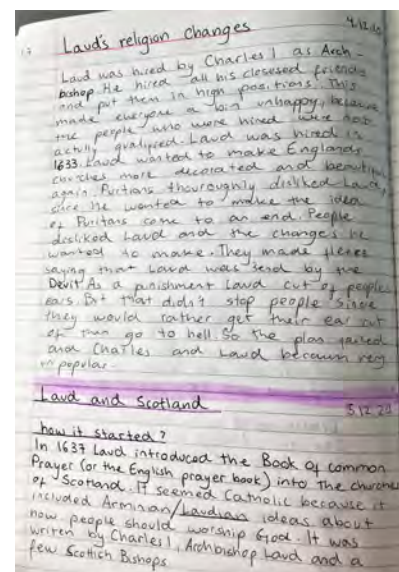 4.12.20
Laud's religion changes
Laud was hired by Charles I as Arch-
bishop. He hired all his closesed friends
and put them in high positions. This
made everyone a bit unhappy, because
the people who were hired were not
actully qualified. Laud was hired in
1633. Laud wanted to make Englands
churches more decorated and beautiful
again. Puritians thouroughly disliked Laud,
since he wanted to make the idea
of Puritans come to an end. People
disliked Laud and the changes he
wanted to make. They made
saying that Laud was send by the
Devil. As a punishment Laud cut of peoples
ears. But that didn't stop people since
they would rather get their ear cut
of than go to hell. So the plan
and Charles and Laud becaum very
un popular.
Laud and Scotland
5.12.20
how it started?
In 1637 Laud introduced the Book of common
Prayer (or the English prayer book) into the churches
of Scotland. It seemed Catholic because it
included Arminan/Laudian ideas about
how people should worship God. It was
writen by Charles I, Archbishop Laud and a
few Scottich Bishops.